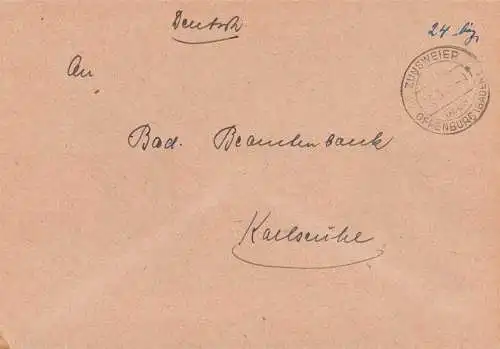 Deutsch
24 
An
ZUNSWEIER
OFFENBURG (BADEN)
Bad. Beamtenbank
Karlsruhe